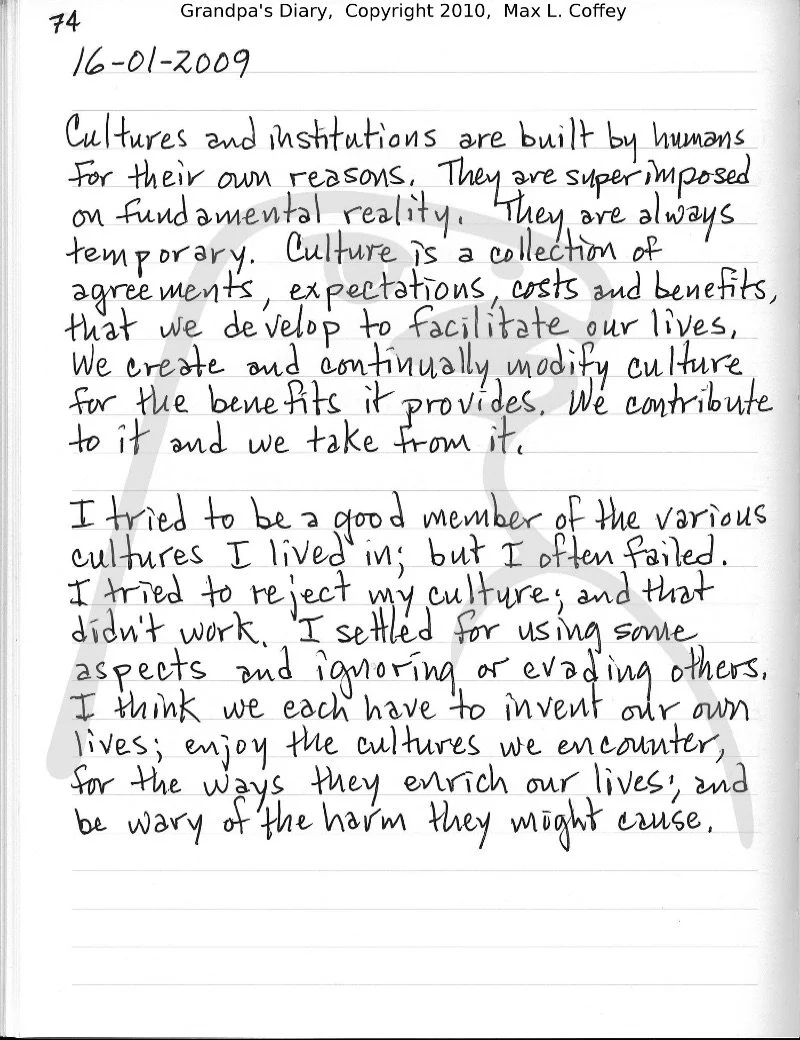 Grandpa's Diary, Copyright 2010, Max L. Coffey
74
16-01-2009
Cultures and institutions are built by humans
for their own reasons. They are superimposed
on fundamental reality. They are always
temporary. Culture is a collection of
agreements, expectations, costs and benefits,
that we develop to facilitate our lives.
We create and continually modify culture
for the benefits it provides. We contribute
to it and we take from it.
I tried to be a good member of the various
cultures I lived in; but I often failed.
I tried to reject my culture; and that
didn't work. I settled for using some
aspects and ignoring or evading others.
I think we each have to invent our own
lives; enjoy the cultures we encounter,
for the ways they enrich our lives; and
be wary of the harm they might cause.